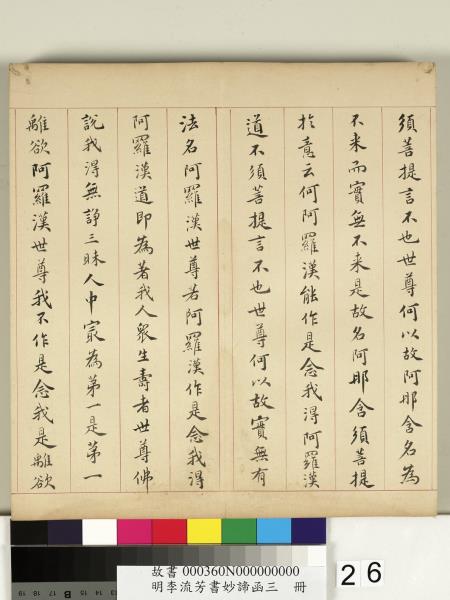 須菩提言不也世尊何以故阿那含名為
不来而實無不来是故名阿那含須菩提
扵意云何阿羅漢能作是念我得阿羅漢
道不須菩提言不也世尊何以故實無有
法名阿羅漢世尊若阿羅漢作是念我得
阿羅漢道即為著我人衆生壽者世尊佛
說我得無諍三昧人中冣為第一是第一
離欲阿羅漢世尊我不作是念我是離欲
故書 000360N000000000
明李流芳書妙諦函三 冊
26